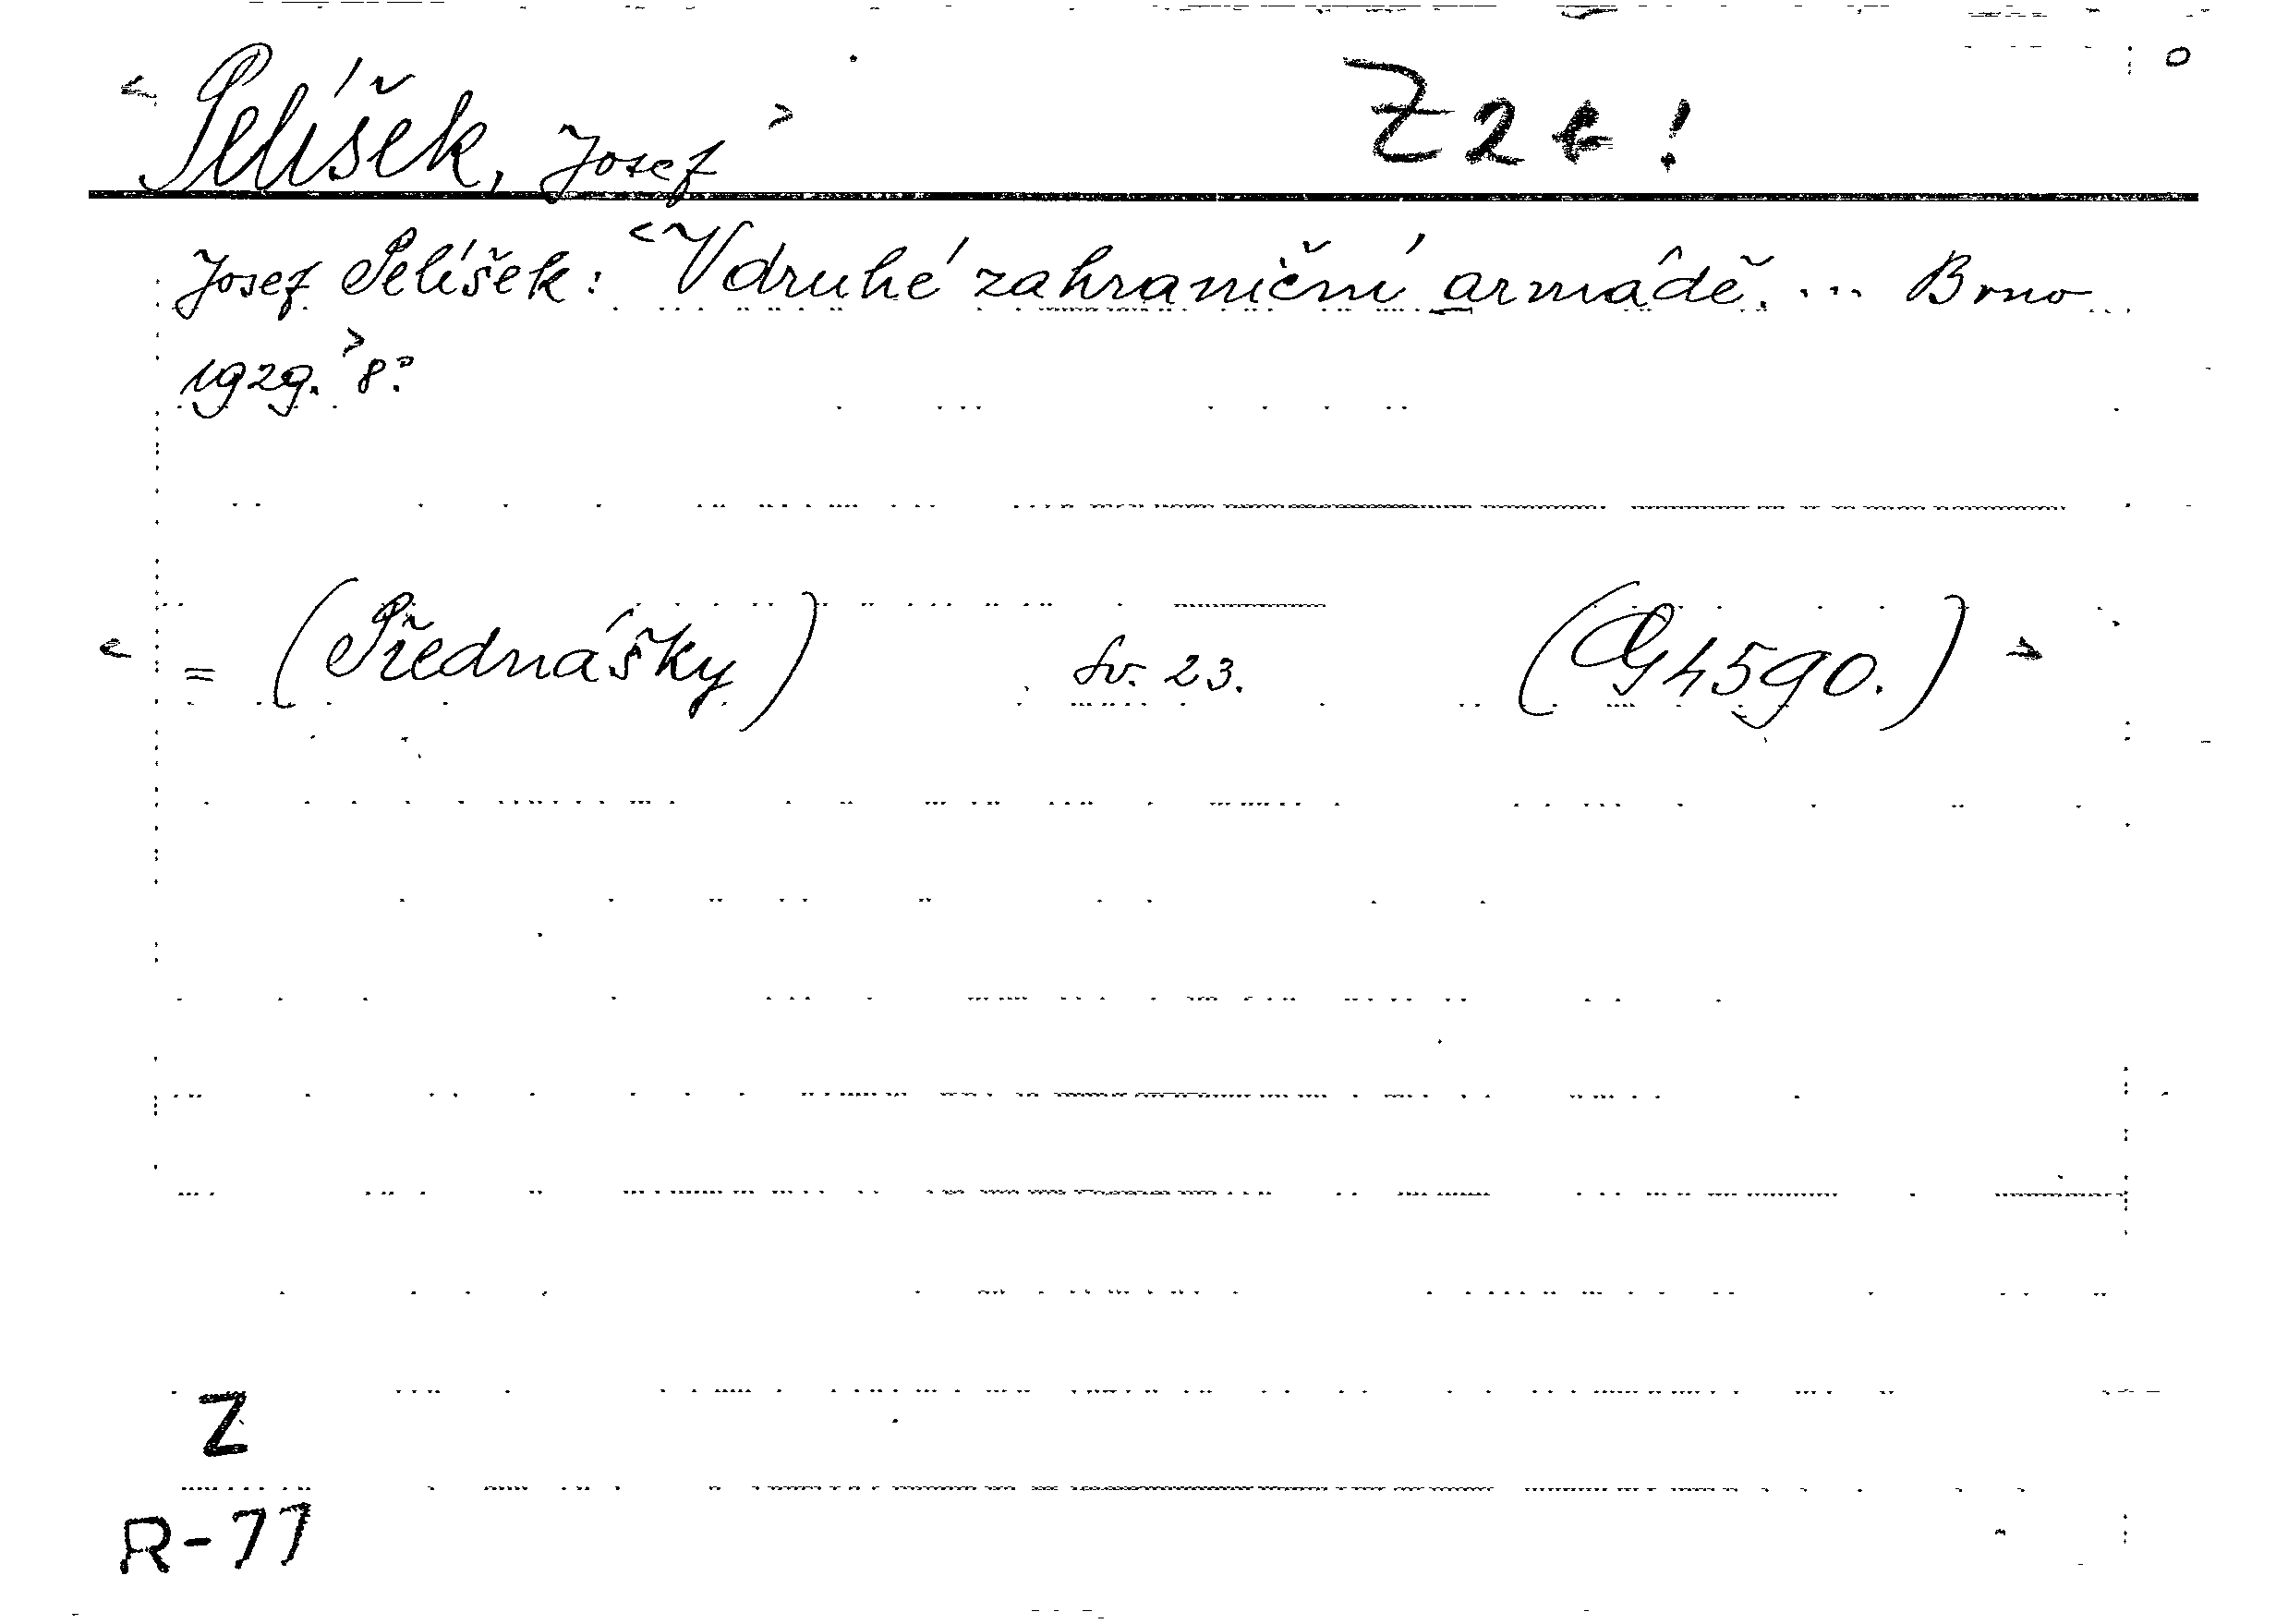 < Pelíšek, Josef > Z 2 t !
Josef Pelíšek: <V druhé zahraniční armádě. ... Brno
1929.> 8°.
< = (Přednášky) Sv. 23. (G 4590.) >
Z
R-77